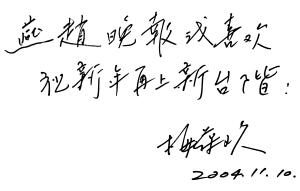 燕赵晚报我喜欢
祝新年再上新台阶!
梅葆玖
2004.11.10.